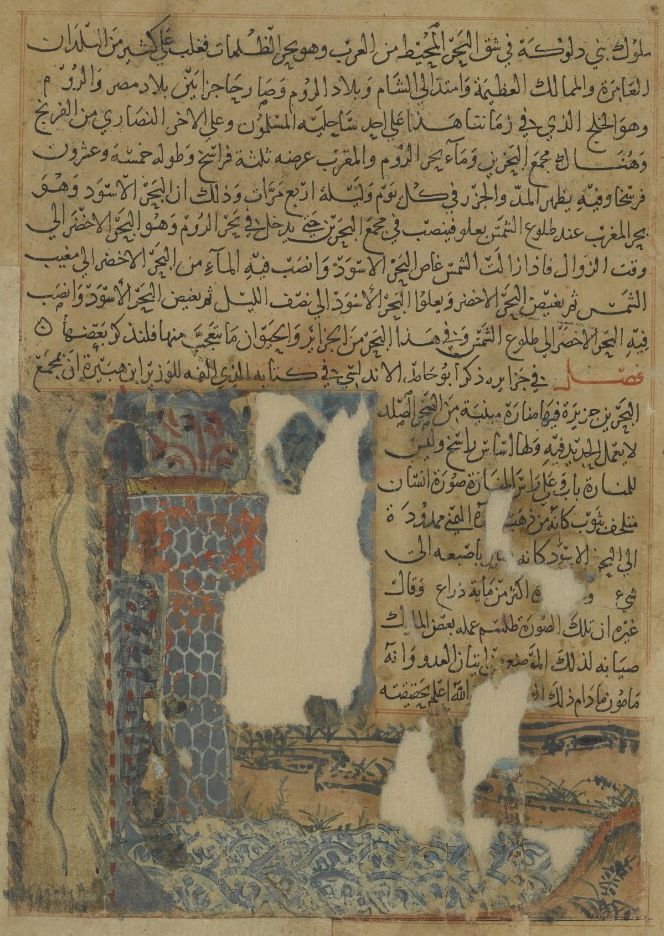 ملوك بني دلوكة في شق البحر المحيط من العرب وهو بحر الظلمات فغلب على كثير من البلدان
العامرة والممالك العظيمة وامتد الى الشام وبلاد الروم وصار حاجزا بين بلاد مصر والروم
وهو الخليج الذي في زماننا هذا على احد ساحليه المسلمون وعلى الاخر النصارى من الفرنج
وهناك مجمع البحرين وماء بحر الروم والمغرب عرضه ثلثة فراسخ وطوله خمسة وعشرون
فرسخا وفيه يظهر المد والجزر في كل يوم وليلة اربع مرات وذلك ان البحر الاسود وهو
بحر المغرب عند طلوع الشمس يعلو فينصب في مجمع البحرين حتى يدخل في بحر الروم وهو البحر الاخضر الى
وقت الزوال فاذا زالت الشمس غاص البحر الاسود وانصب فيه الماء من البحر الاخضر الى مغيب
الشمس ثم يغيض البحر الاخضر ويعلوا البحر الاسود الى نصف الليل ثم يغيض البحر الاسود وانصب
فيه البحر الاخضر الى طلوع الشمس وفي هذا البحر من الجزائر والحيوان ما يتعجب منها فلنذكر بعضها
فصل في جزايره ذكر ابو حامد الاندلسي في كتابه الذي الفه للوزير ابن هبيرة ان مجمع
البحرين جزيرة فيها منارة مبنية من الحجر الصلد
لا يعمل الحديد فيه ولها اساس راسخ وليس
للمنارة باب وعلى راس المنارة صورة انسان
متلحف بثوب كانه من ذهب اليمنى ممدودة
الى البحر الاسود كانه باصبعه الى
شيء اكثر من ماية ذراع وقال
غيره ان تلك الصورة طلسم عمله بعض الملوك
صيانة لذلك الموضع اتيان العدو وانه
مامون ما دام ذلك الله اعلم بحقيقته